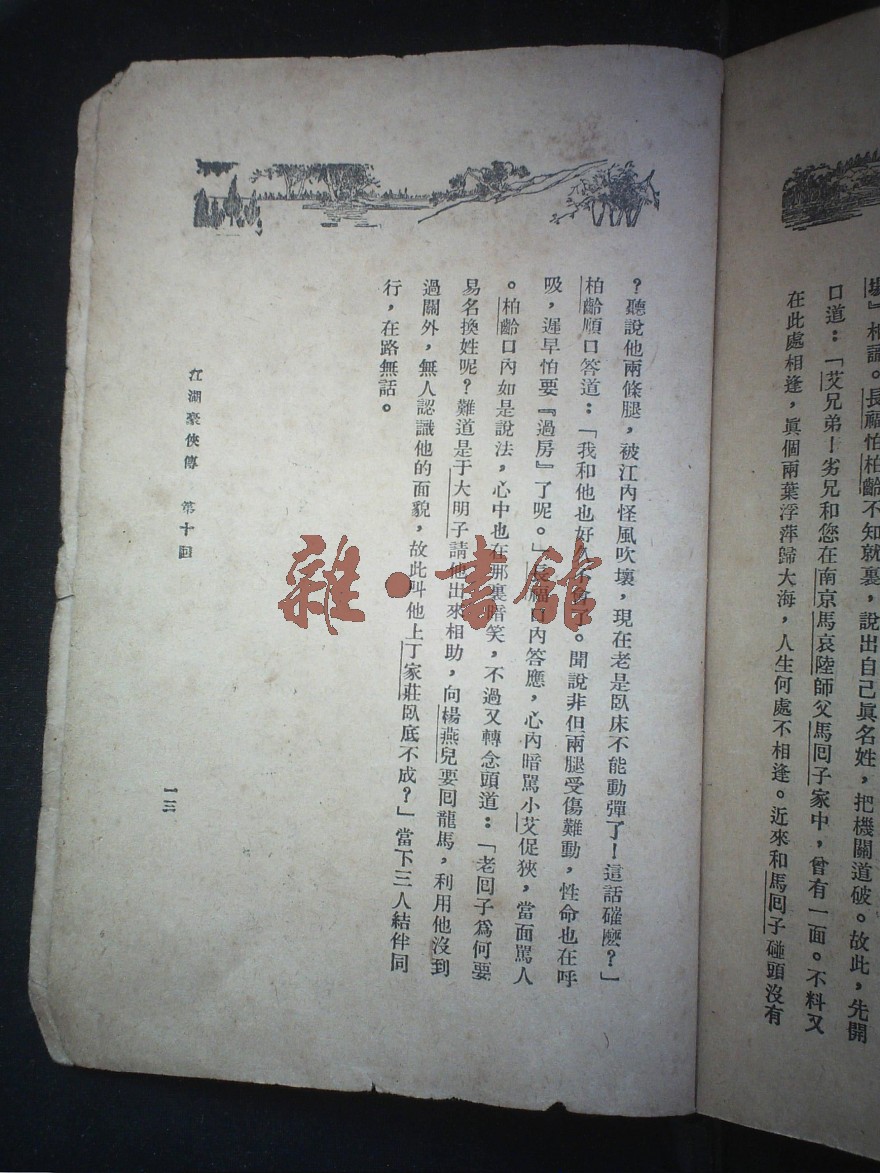 場』相識。長福怕柏齡不知就裏，說出自己眞名姓，把機關道破。故此，先開
口道：「艾兄弟！劣兄和您在南京馬哀陸師父馬囘子家中，曾有一面。不料又
在此處相逢，眞個兩葉浮萍歸大海，人生何處不相逢。近來和馬囘子碰頭沒有
？聽說他兩條腿，被江內怪風吹壞，現在老是臥床不能動彈了！這話確麽？」
柏齡順口答道：「我和他也好久不會了。聞說非但兩腿受傷難動，性命也在呼
吸，遲早怕要『過房』了呢。」長福口內答應，心內暗罵小艾促狹，當面罵人
。柏齡口內如是說法，心中也在那裏暗笑，不過又轉念頭道：「老囘子爲何要
易名換姓呢？難道是于大明子請他出來相助，向楊燕兒要囘龍馬，利用他沒到
過關外，無人認識他的面貌，故此叫他上丁家莊臥底不成？」當下三人結伴同
行，在路無話。
江湖豪俠傳 第十回
一三
雜·書館